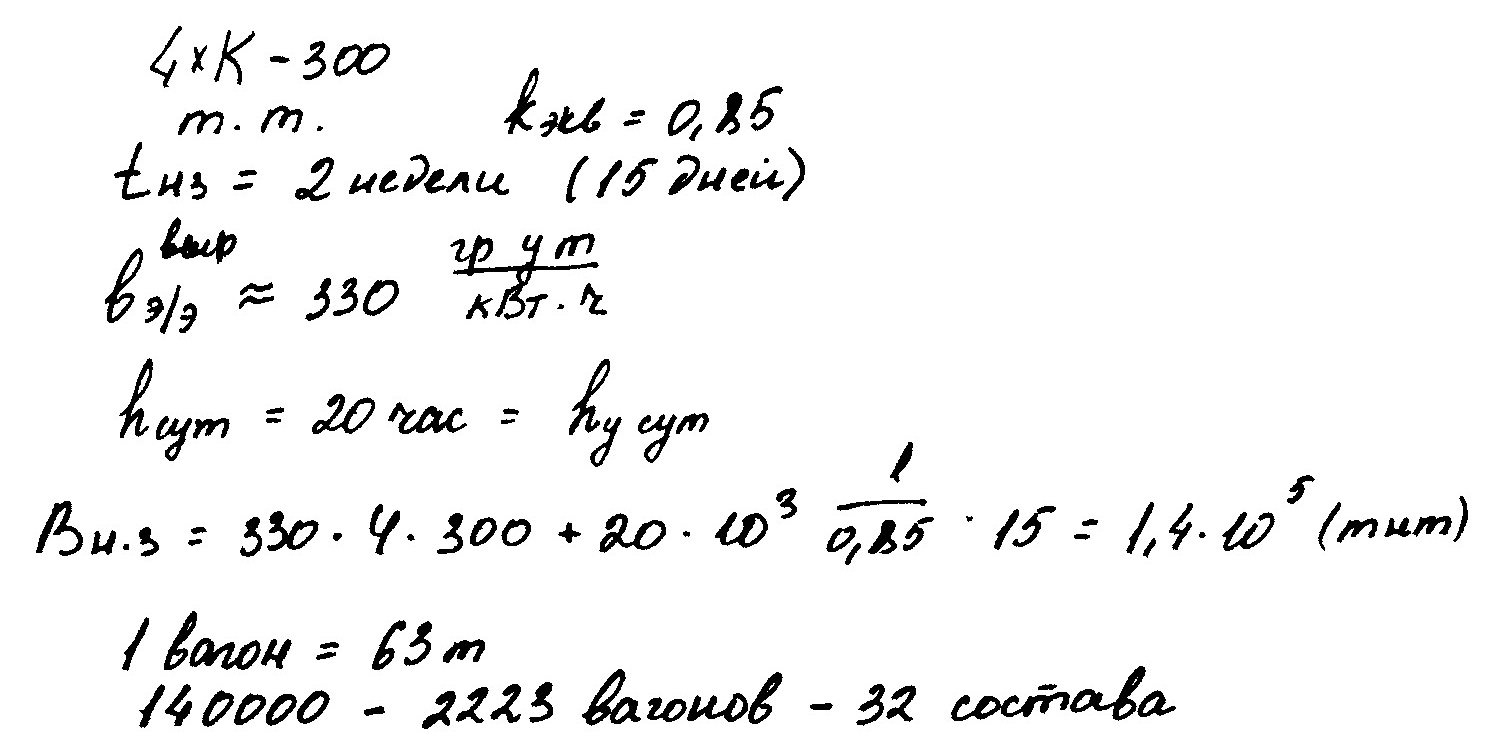 4×К - 300
т. т. kэкв = 0,85
tнз = 2 недели (15 дней)
bэ/э выр ≈ 330 гр у т / кВт · ч
hсут = 20 час = hу сут
Bн.з = 330 · 4 · 300 + 20 · 10³ 1/0,85 · 15 = 1,4 · 10⁵ (тнт)
1 вагон = 63 т
140000 - 2223 вагонов - 32 состава